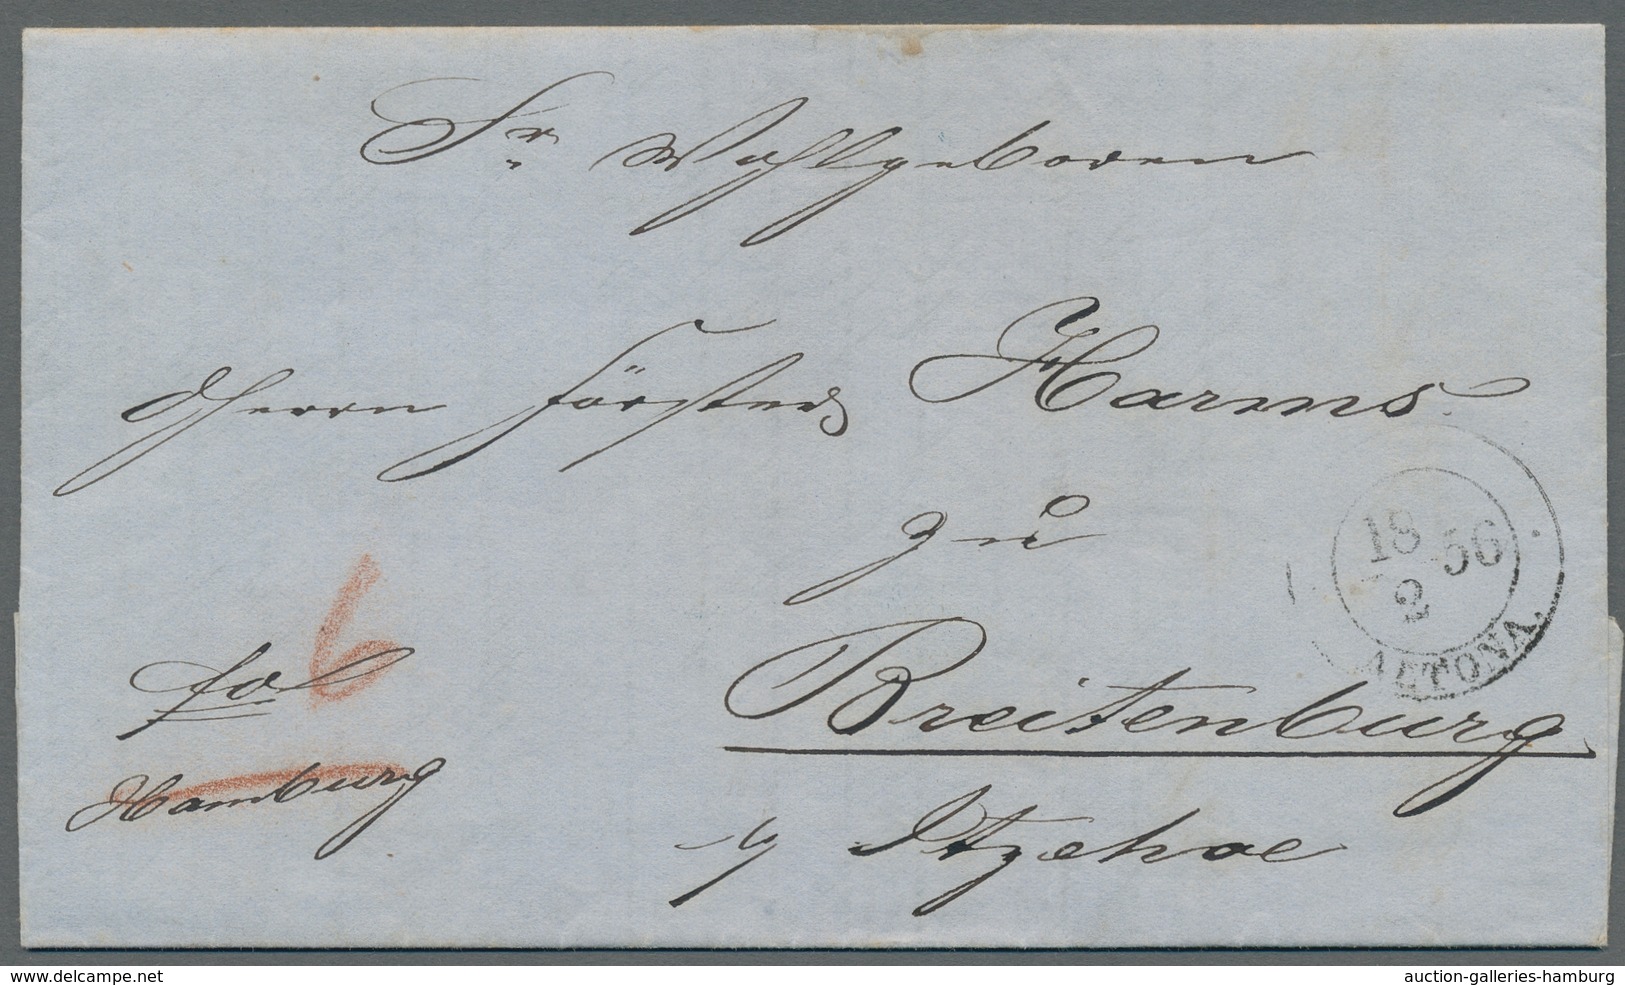 Sr Wohlgeboren
Herrn Förster Harms
zu
Breitenburg
Itzehoe
6
fco
Hamburg
18 56
2
ALTONA.
www.delcampe.net
auction-galleries-hamburg